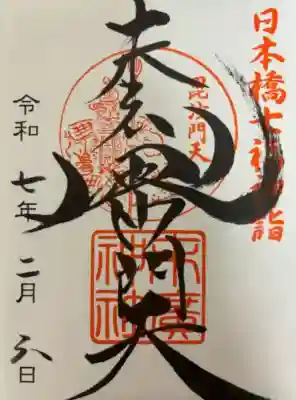 日本橋七福神詣
毘沙門天
末廣毘沙門天
末廣神社
令和七年二月六日